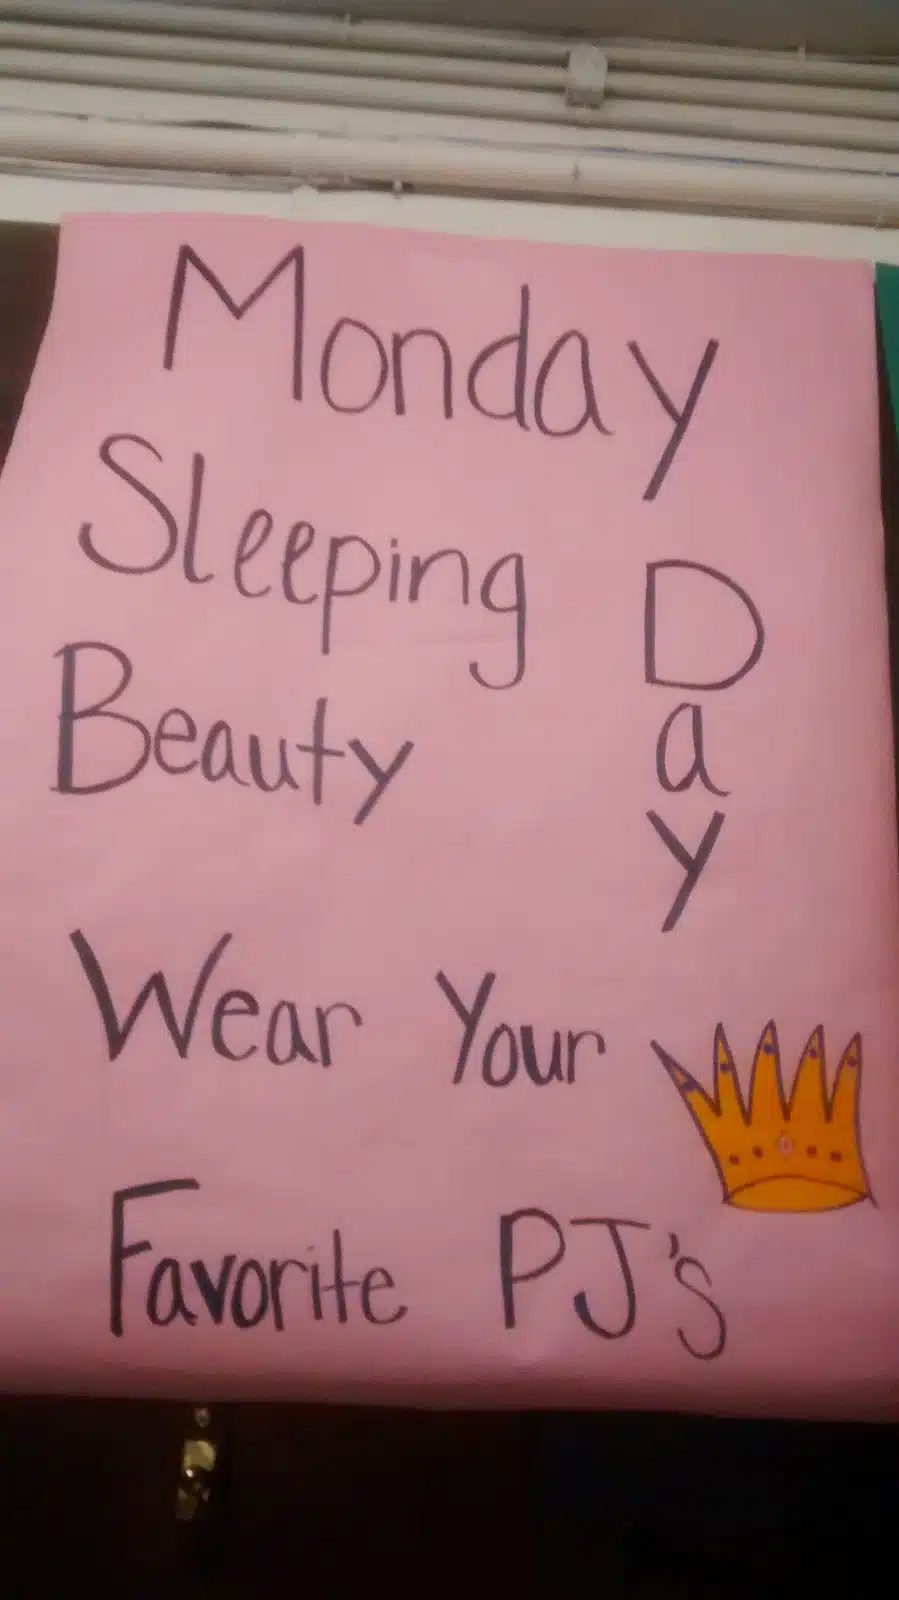 Monday
Sleeping
Beauty
Day
Wear Your
Favorite PJ's